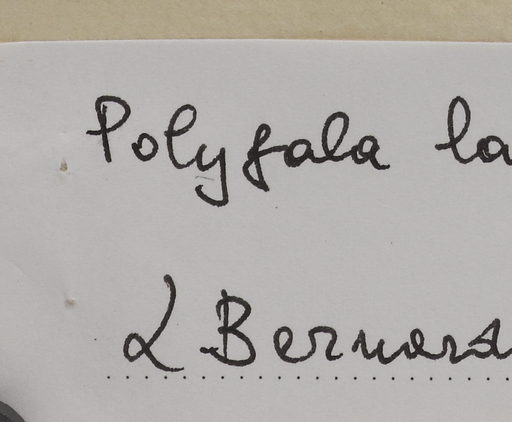 Polygala la
L Bernard